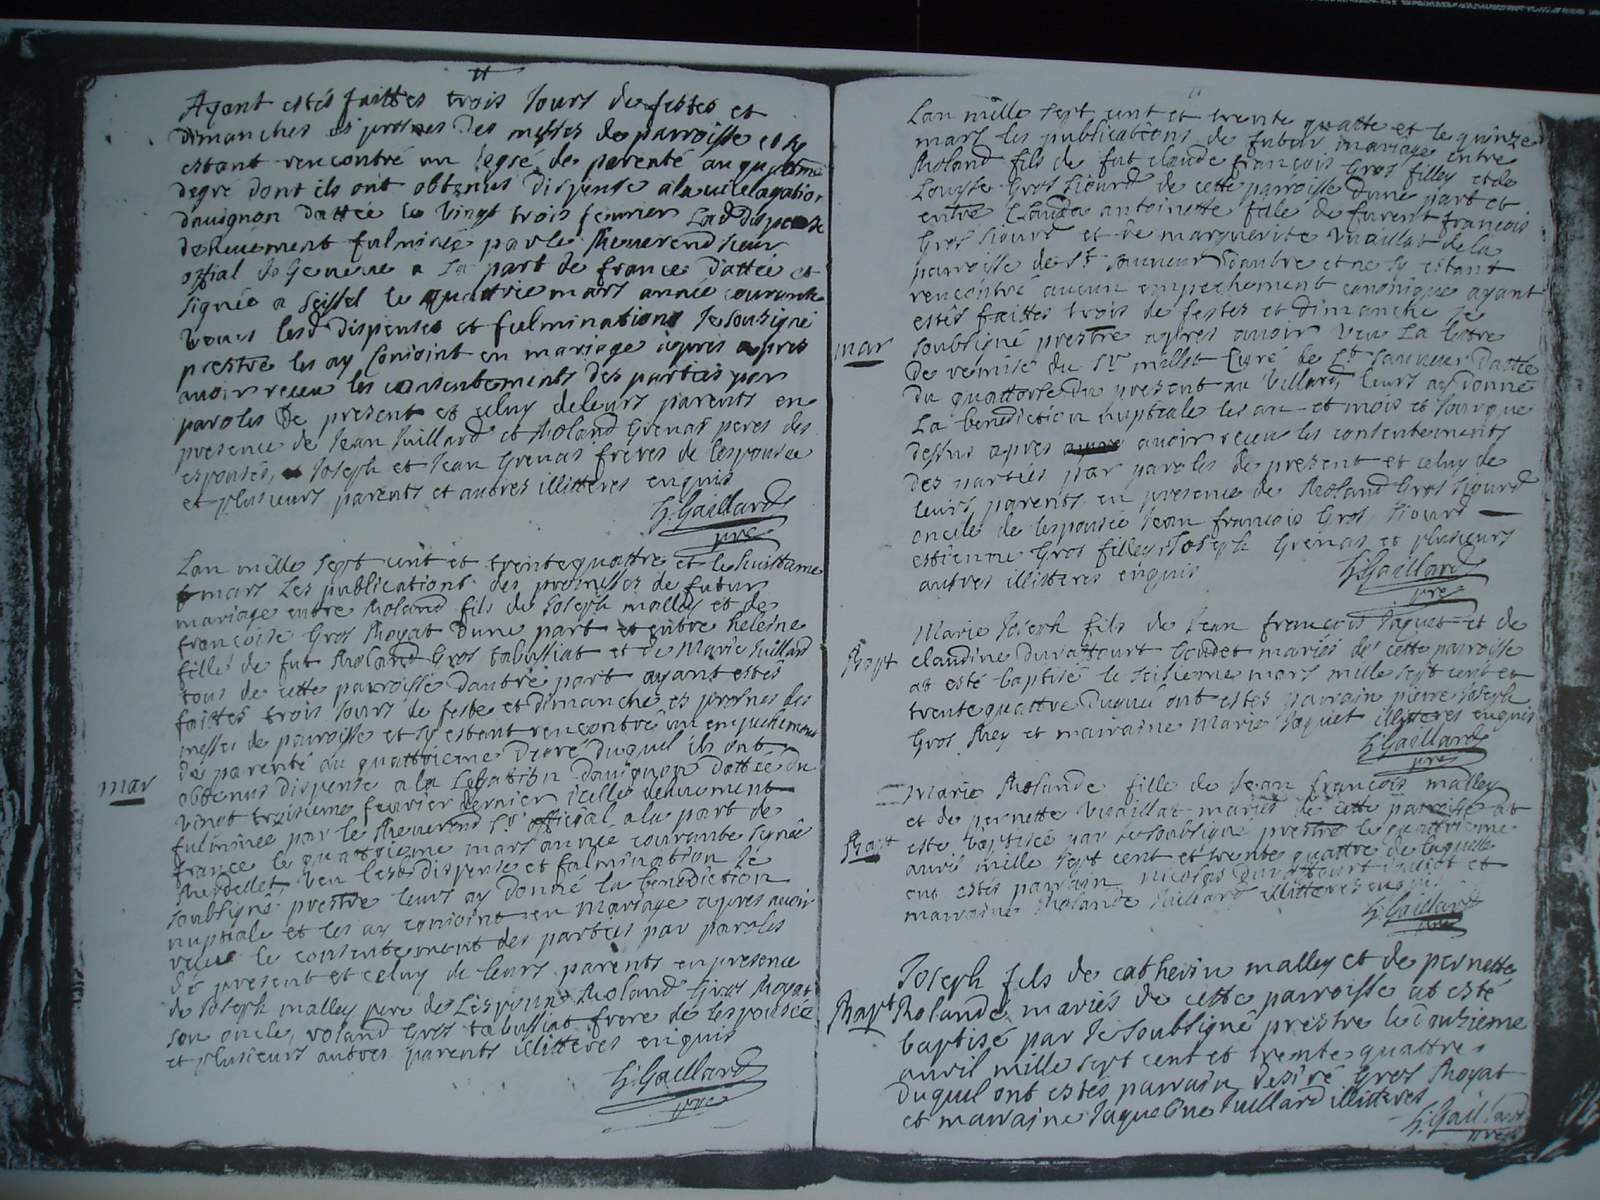 Ayant estés faittes trois Jours de festes et
dimanches es prosnes des messes de parroisse et sy
estant rencontré un de parenté au quatrieme
degre dont ils ont obtenus dispense a la vicelegation
davignon dattée le vingt trois fevrier Lad dispense
deheuement fulminée par le Reverend sieur
official de Geneve a La part de france dattée et
signée a Seissel le quattrie mars année courante
veues lesd dispenses et fulminations Je soubsigné
prestre les ay conjoint en mariage apres apres
avoir receu les consentements des parties par
paroles de present et celuy de leurs parents en
presence de Jean Juillard et Roland Grenas peres des
espousés, Joseph et Jean Grenas freres de Lespousée
et plusieurs parents et autres illitteres enquis
G: Gaillard
pre
Lan mille sept cent et trente quattre et le huittieme
mars Les publications des promesses de futur
mariage entre Roland fils de Joseph malley et de
francoise Gros Royat dune part et entre heleine
fille de fut Roland Gros tabussiat et de Marie Juillard
tous de cette parroisse dautre part ayant estés
faittes trois Jours de feste et dimanche es prosnes des
messes de parroisse et sy estant rencontré un empechement
de parenté au quattrieme degré duquel ils ont
obtenus dispense a la Legation davignon dattée du
vingt troisieme fevrier dernier icelle deheument
fulminée par le Reverend Sr official a la part de
france le quattrieme mars année courante signée
Rendellet veu lesd dispense et fulmination Je
soubsigné prestre leurs ay donné la benediction
nuptiale et les ay conjoint en mariage apres avoir
receu le consentement des parties par paroles
de present et celuy de leurs parents en presence
de Joseph malley pere de Lespoux Roland Gros Royat
son oncle, roland Gros tabussiat frere de lespousée
et plusieurs autres parents illitteres enquis
G: Gaillard
pre
mar
Lan mille sept cent et trente quatte et le quinze
mars les publications de futur mariage entre
Roland fils de fut claude françois Gros filley et de
Louyse Gros Siourd de cette parroisse dune part et
entre Clauda antoinette fille de furent françois
Gros Siourd et de marguerite Vuaillat de la
parroisse de St sauveur dautre et ne sy estant
rencontré aucun empechement canonique ayant
estés faittes trois de festes et dimanche Je
soubsigné prestre apres avoir veu La lettre
de remise du Sr millet Curé de St sauveur dattée
du quattorse du present au Villard leurs ay donné
La benediction nuptiale les an et mois et Jour que
dessus apres avoir receu les consentements
des parties par paroles de present et celuy de
leurs parents en presence de Roland Gros Siourd
oncle de lespousée Jean francois Gros Siourd
estienne Gros filley, Joseph Grenas et plusieurs
autres illitteres enquis
G: Gaillard
pre
mar
Marie Joseph fils de Jean françois Jaquet et de
claudine Duraffourt Goudet mariés de cette parroisse
at esté baptisé le seisieme mars mille sept cent et
trente quattre Duquel ont estes parrain pierre Joseph
Gros Rey et marraine Marie Jaquet illitteres enquis
G: Gaillard
pre
Bapt
Marie Rolande fille de Jean françois malley
et de pernette Vuaillat mariés de cette parroisse at
esté baptisée par Je soubsigné prestre le quattrieme
avril mille sept cent et trente quattre de laquelle
ont estés parrain nicolas Duraffourt et
marraine Rolande Juillard illitteres enquis
G: Gaillard
pre
Bapt
Joseph fils de catherin malley et de pernette
Rolande mariés de cette parroisse at esté
baptisé par Je soubsigné prestre le douzieme
avril mille sept cent et trente quattre
Duquel ont estés parrain Desiré Gros Royat
et marraine Jaqueline Juillard illitteres
G: Gaillard
pre
Bapt